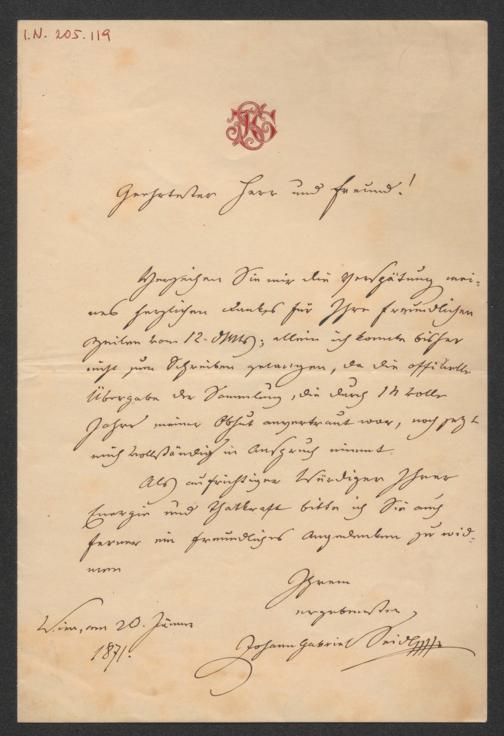 I.N. 205.119
Geehrtester Herr und Freund!
Verzeihen Sie mir die Verspätung mei-
nes herzlichen Dankes für Ihre freundlichen
Zeilen vom 12. d. Mts; allein ich konnte bisher
nicht zum Schreiben gelangen, da die officielle
Übergabe der Sammlung, die durch 14 volle
Jahre meiner Obhut anvertraut war, noch jetzt
mich vollständig in Anspruch nimmt.
Als aufrichtiger Würdiger Ihrer
Energie und Thatkraft bitte ich Sie auch
ferner ein freundliches Angedenken zu wid-
men
Ihrem
ergebensten
Wien, am 20. Jänner
Johann Gabriel Seidl
1871.